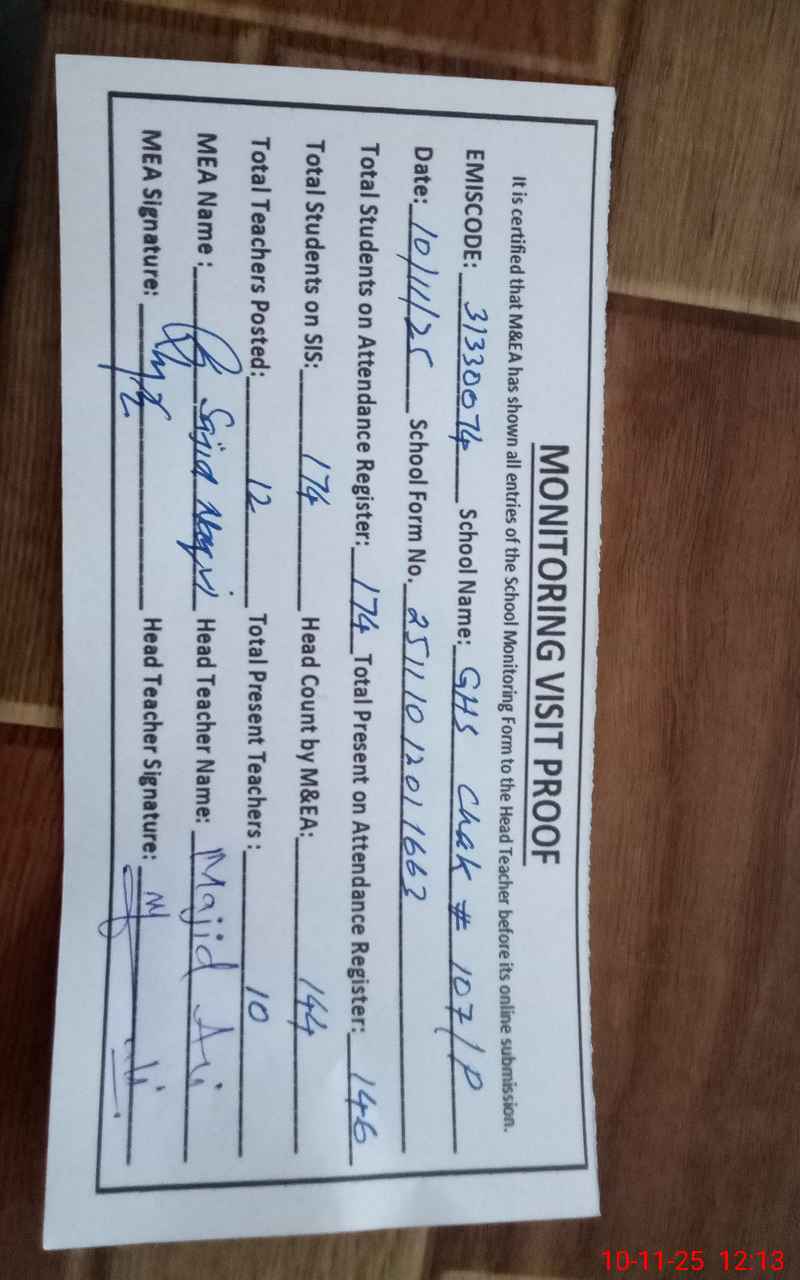 MONITORING VISIT PROOF
It is certified that M&EA has shown all entries of the School Monitoring Form to the Head Teacher before its online submission.
EMISCODE: 31330074 School Name: GHS Chak # 107/P
Date: 10/11/25 School Form No. 25111012011663
Total Students on Attendance Register: 174 Total Present on Attendance Register: 146
Total Students on SIS: 174 Head Count by M&EA: 144
Total Teachers Posted: 12 Total Present Teachers: 10
MEA Name: Sajid Head Teacher Name: Majid Ali
MEA Signature: Head Teacher Signature:
10-11-25 12:13